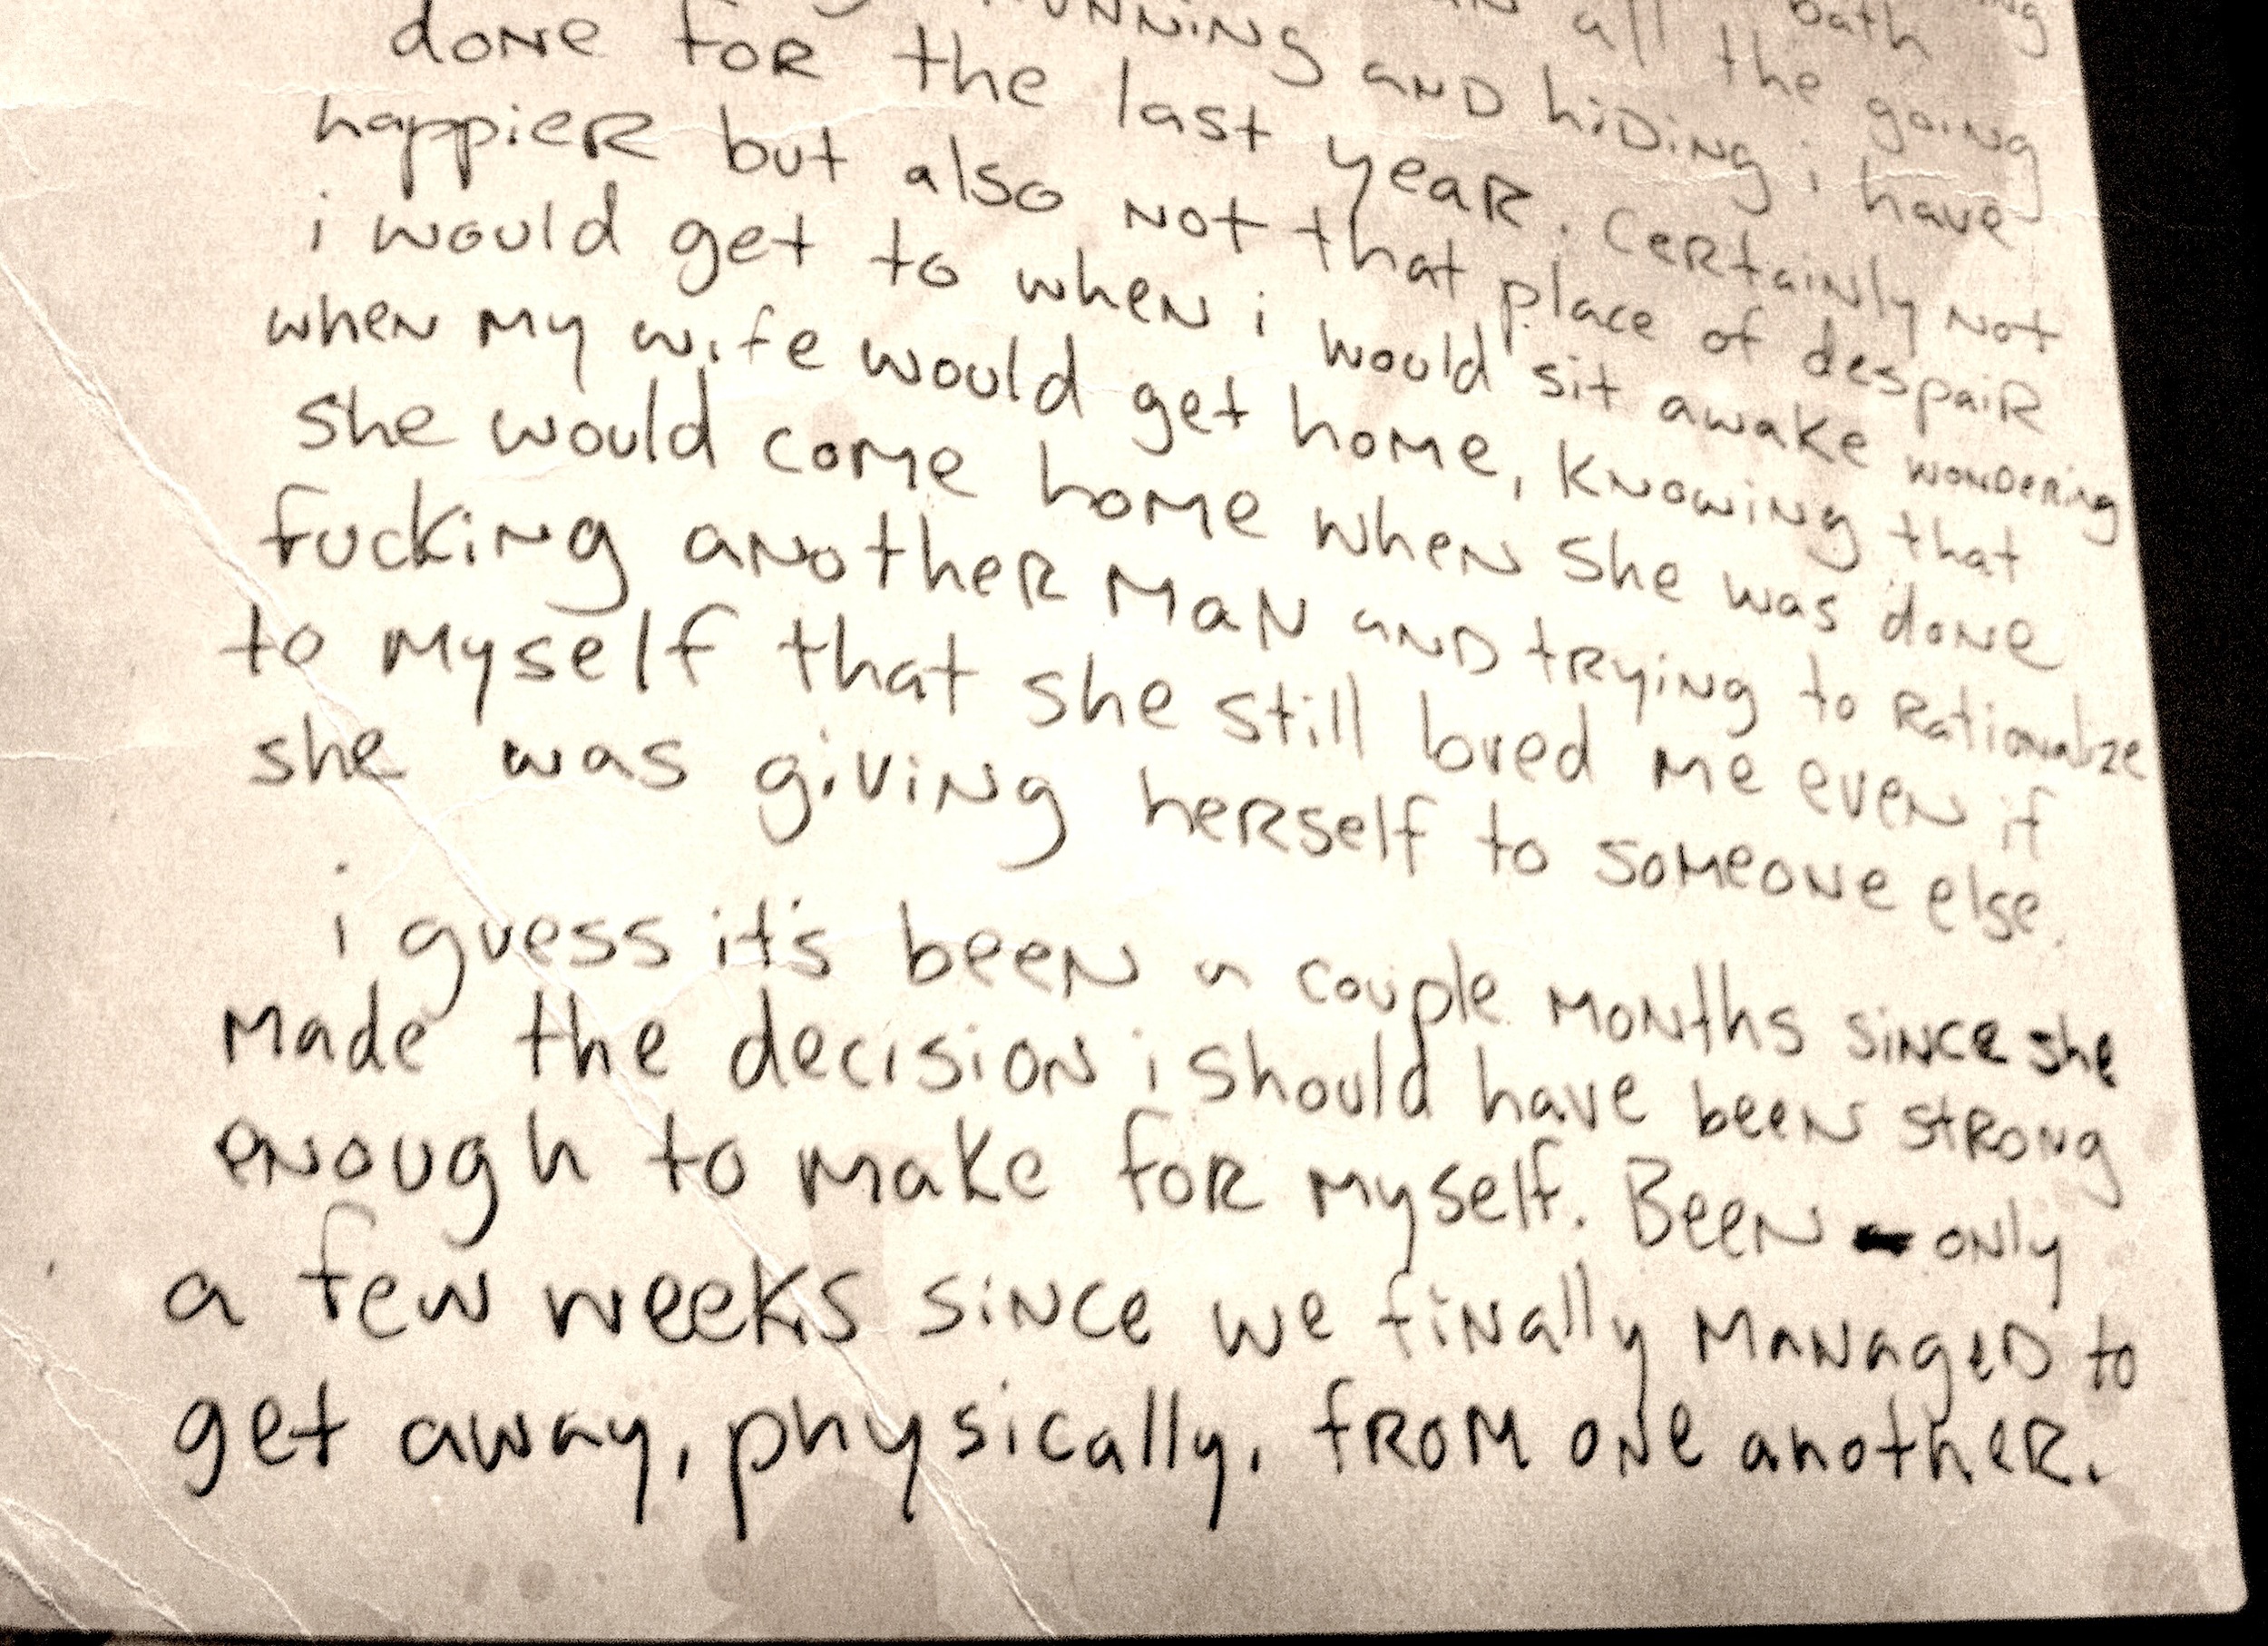 bath
all the going
running and hiding i have
done for the last year. Certainly not
happier but also not that place of despair
i would get to when i would sit awake wondering
when my wife would get home, knowing that
she would come home when she was done
fucking another man and trying to rationalize
to myself that she still loved me even if
she was giving herself to someone else.
i guess it's been a couple months since she
made the decision i should have been strong
enough to make for myself. Been only
a few weeks since we finally managed to
get away, physically, from one another.